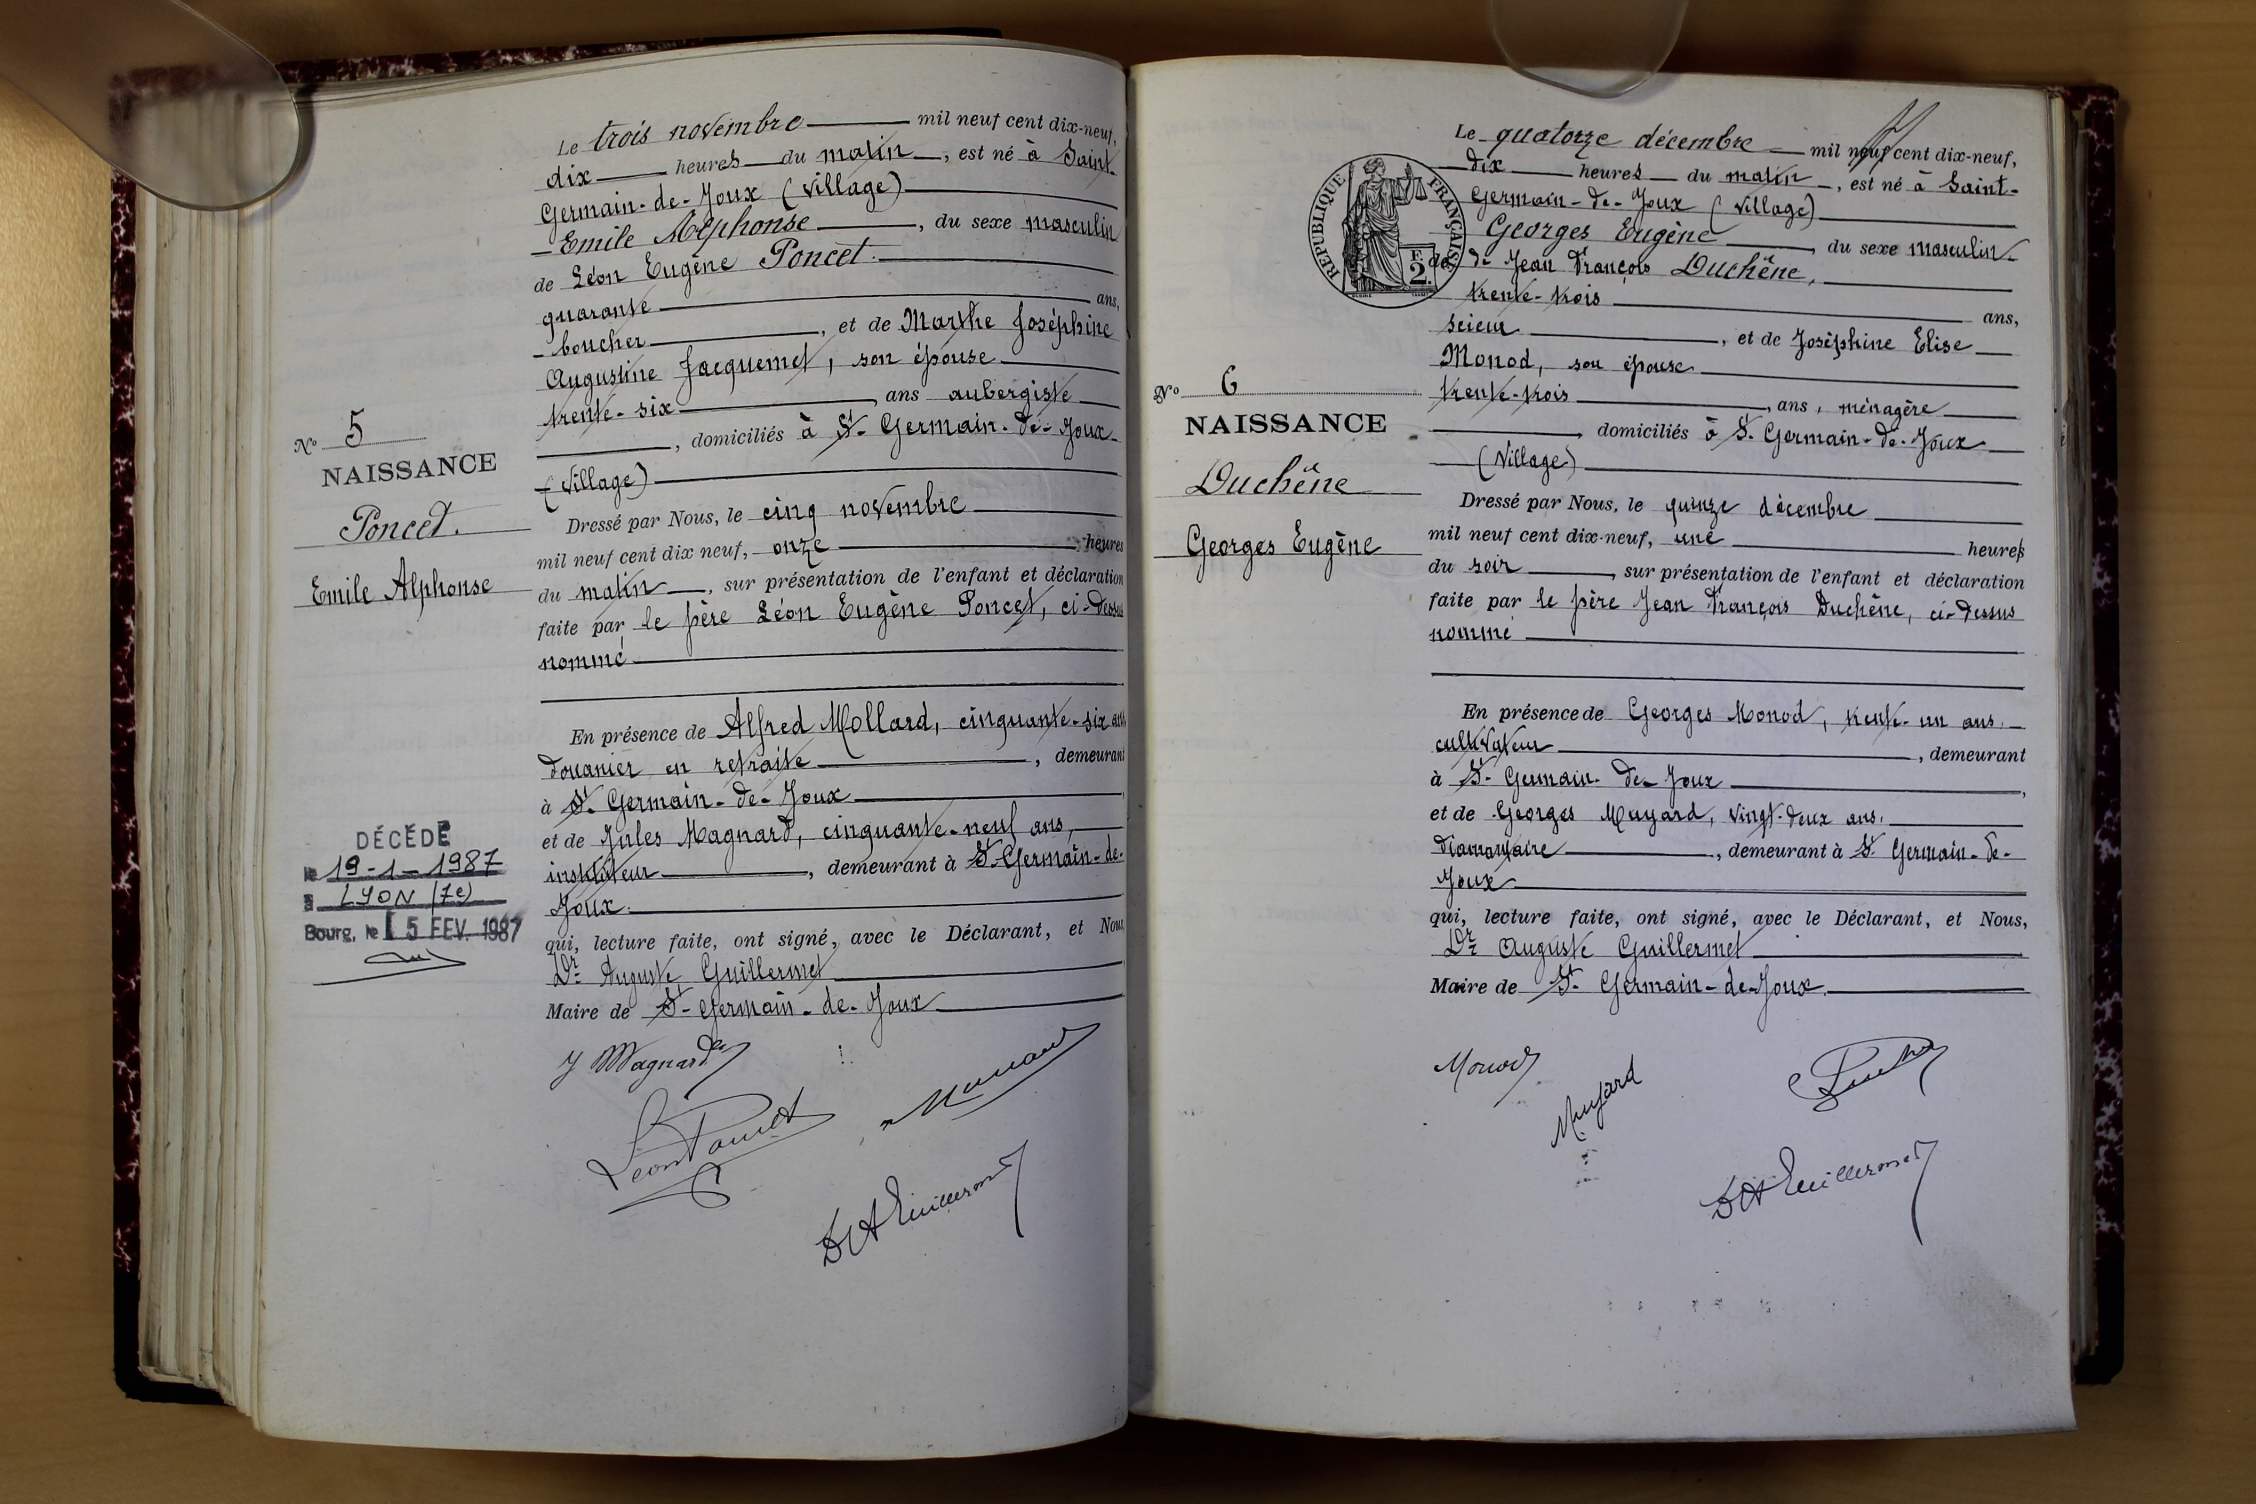 Le trois novembre mil neuf cent dix-neuf,
dix heures du matin, est né à Saint-
Germain-de-Joux (village)
Emile Alphonse, du sexe masculin
de Léon Eugène Poncet.
quarante ans,
boucher, et de Marthe Joséphine
Augustine Jacquemet, son épouse
trente-six ans aubergiste
, domiciliés à St-Germain-de-Joux
(village)
No 5
NAISSANCE
Poncet.
Emile Alphonse
Dressé par Nous, le cinq novembre
mil neuf cent dix neuf, onze heures
du matin, sur présentation de l'enfant et déclaration
faite par le père Léon Eugène Poncet, ci-dessus
nommé
En présence de Alfred Mollard, cinquante-six ans
douanier en retraite, demeurant
à St-Germain-de-Joux
et de Jules Magnard, cinquante-neuf ans,
instituteur, demeurant à St-Germain-de-
Joux.
qui, lecture faite, ont signé, avec le Déclarant, et Nous,
Dr Auguste Guillermet
Maire de St-Germain-de-Joux
DÉCÉDÉ
le 19-1-1987
à LYON (7e)
Bourg, le 5 FEV. 1987
J Magnard
Léon Poncet
Dr A Guillermet
Le quatorze décembre mil neuf cent dix-neuf,
dix heures du matin, est né à Saint-
Germain-de-Joux (village)
Georges Eugène, du sexe masculin
de de Jean François Duchêne,
trente-trois ans,
scieur, et de Joséphine Elise
Monod, son épouse
trente-trois, ans, ménagère
domiciliés à St-Germain-de-Joux
(Village)
RÉPUBLIQUE FRANÇAISE
2 F.
No 6
NAISSANCE
Duchêne
Georges Eugène
Dressé par Nous, le quinze décembre
mil neuf cent dix-neuf, une heures
du soir, sur présentation de l'enfant et déclaration
faite par le père Jean François Duchêne, ci-dessus
nommé
En présence de Georges Monod, trente-un ans,
cultivateur, demeurant
à St-Germain-de-Joux,
et de Georges Muyard, vingt-deux ans,
diamantaire, demeurant à St-Germain-de-
Joux
qui, lecture faite, ont signé, avec le Déclarant, et Nous,
Dr Auguste Guillermet
Maire de St-Germain-de-Joux.
Monod
Muyard
Dr A Guillermet